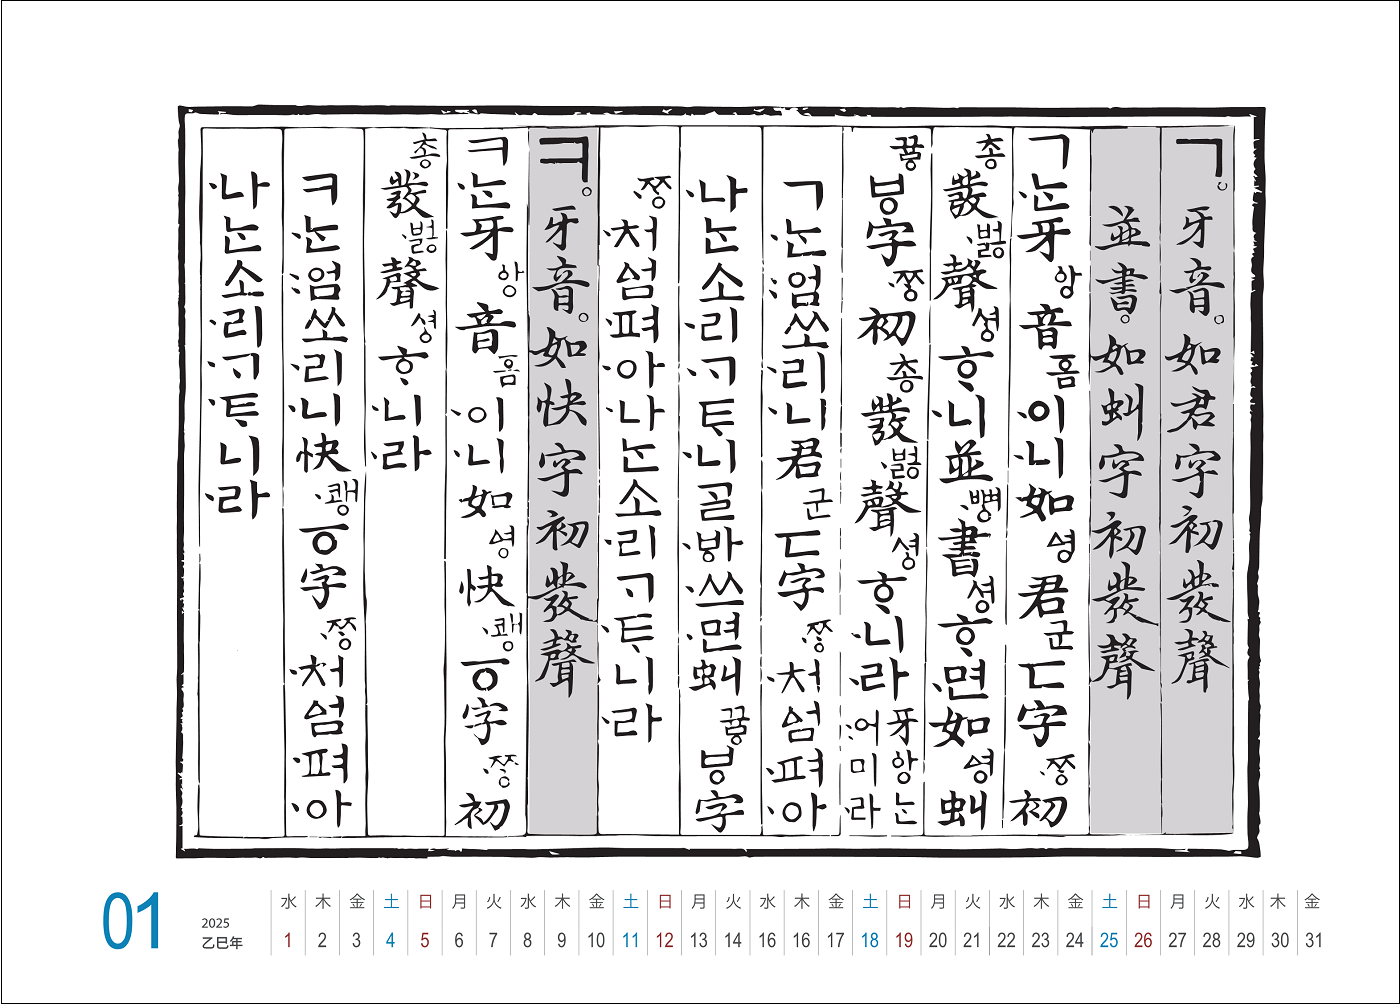 ㄱ。牙音。如君字初發聲
並書。如虯字初發聲
ㄱ·ᄂᆞᆫ牙ᅌᅡᆼ音ᅙᅳᆷ·이·니如ᅀᅧᆼ君군ㄷ字·ᄍᆞᆼ初
총發·버ᇙ聲셩ᄒᆞ·니並·뼝書셩ᄒᆞ·면如ᅀᅧᆼ虯
뀨ᇢㅸ字·ᄍᆞᆼ初총發·버ᇙ聲셩ᄒᆞ·니·라牙ᅌᅡᆼᄂᆞᆫ:어미·라
ㄱ·ᄂᆞᆫ:엄쏘·리·니君군ㄷ字·ᄍᆞᆼ·처ᅀᅥᆷ·펴·아
·나ᄂᆞᆫ소·리·ᄀᆞ·ᄐᆞ·니ᄀᆞᆯ·ᄫᅡ·쓰·면虯뀨ᇢㅸ字
·ᄍᆞᆼ·처ᅀᅥᆷ·펴·아·나ᄂᆞᆫ소·리·ᄀᆞ·ᄐᆞ·니·라
ㅋ。牙音。如快字初發聲
ㅋ·ᄂᆞᆫ牙ᅌᅡᆼ音ᅙᅳᆷ·이·니如ᅀᅧᆼ快·쾡ㆆ字·ᄍᆞᆼ初
총發·버ᇙ聲셩ᄒᆞ·니·라
ㅋ·ᄂᆞᆫ:엄쏘·리·니快·쾡ㆆ字·ᄍᆞᆼ·처ᅀᅥᆷ·펴·아
·나ᄂᆞᆫ소·리·ᄀᆞ·ᄐᆞ·니·라
01
2025
乙巳年
水 木 金 土 日 月 火 水 木 金 土 日 月 火 水 木 金 土 日 月 火 水 木 金 土 日 月 火 水 木 金
1 2 3 4 5 6 7 8 9 10 11 12 13 14 16 16 17 18 19 20 21 22 23 24 25 26 27 28 29 30 31